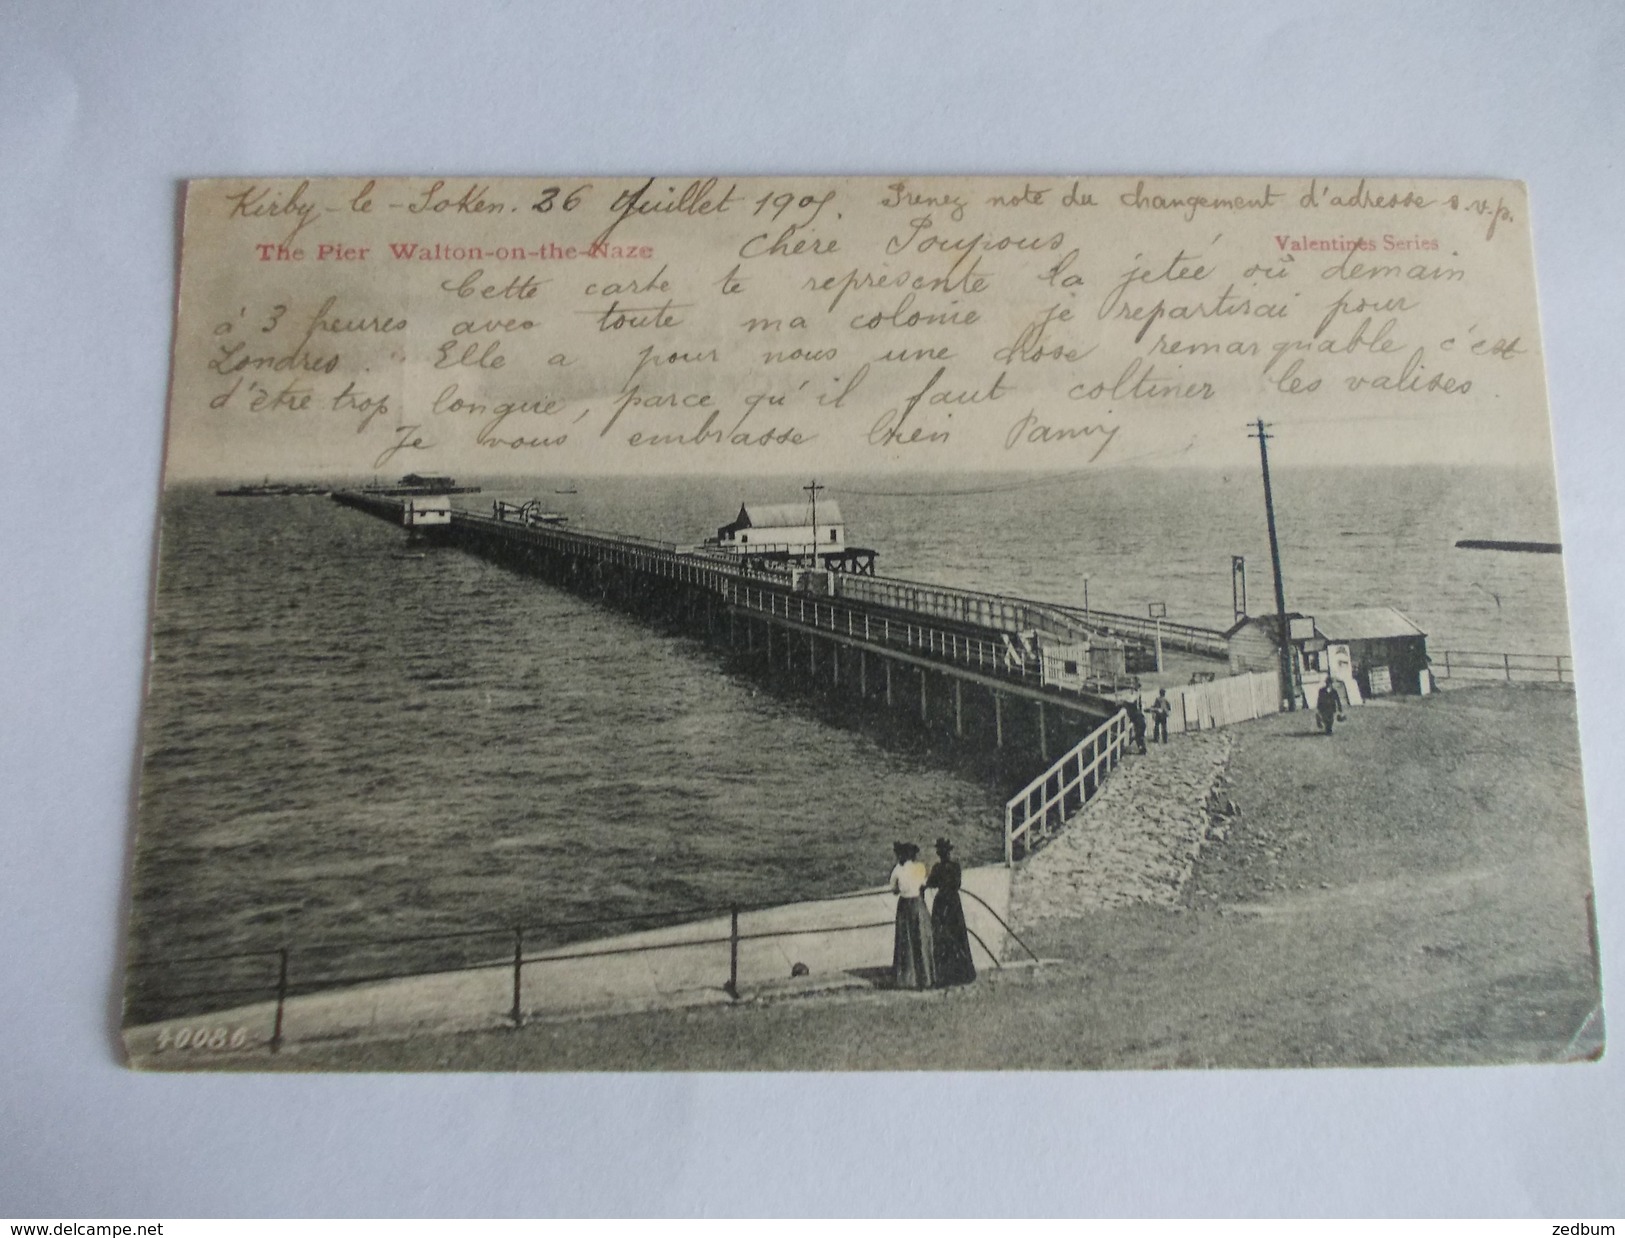 Kirby-le-Soken. 26 Juillet 1905. Prenez note du changement d'adresse s.v.p.
The Pier Walton-on-the-Naze
Valentines Series
Chère Poupous
Cette carte te représente la jetée où demain
à 3 heures avec toute ma colonie je repartirai pour
Londres. Elle a pour nous une chose remarquable, c'est
d'être trop longue, parce qu'il faut coltiner les valises.
Je vous embrasse bien
40086
www.delcampe.net
zedbum